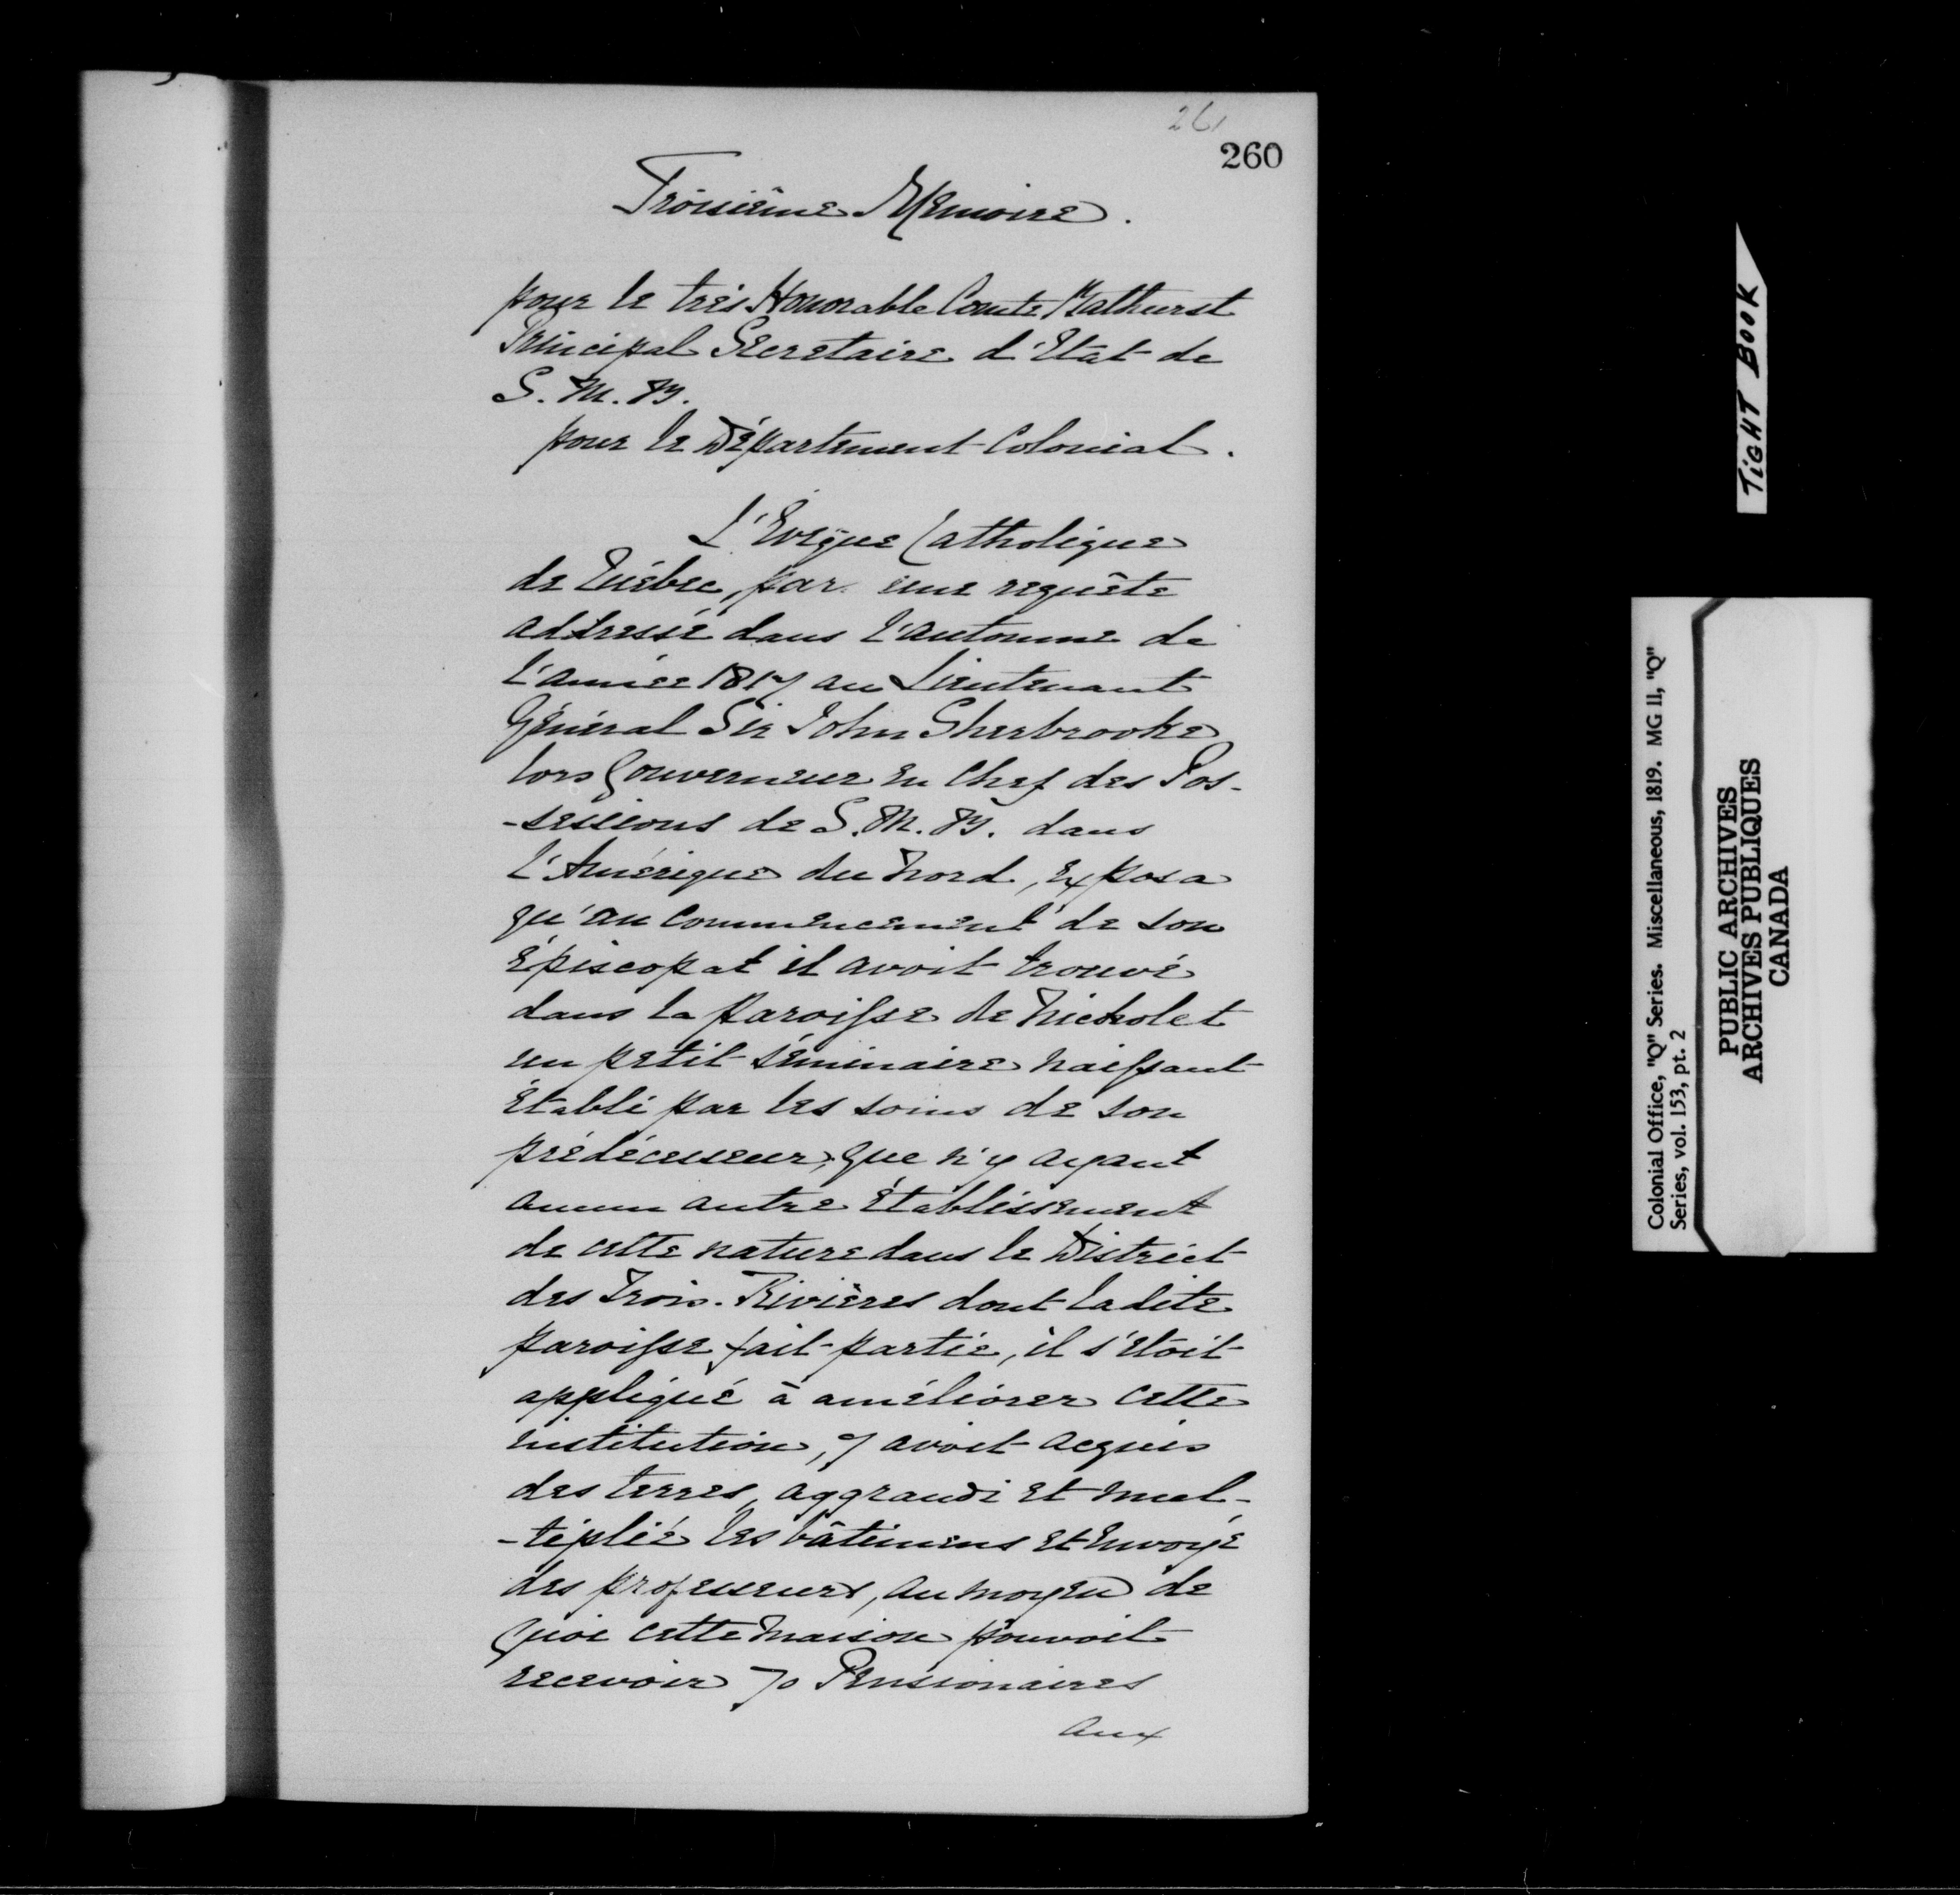 261
260
Troisième Memoire.
pour le très Honorable Comte Bathurst
Principal Secretaire d'Etat de
S. M. B.
pour le Département Colonial.
L'Evêque Catholique
de Québec, par une requête
adressé dans l'automne de
l'année 1817 au Lieutenant
Général Sir John Sherbrooke
lors Gouverneur en Chef des Pos-
-sessions de S. M. B. dans
l'Amérique du Nord, exposa
qu'au commencement de son
épiscopat il avoit trouvé
dans la paroisse de Nicholet
un petit séminaire naissant
établi par les soins de son
prédécesseur; que n'y ayant
aucun autre établissement
de cette nature dans le District
des Trois-Rivières dont ladite
paroisse fait partie, il s'étoit
appliqué à améliorer cette
institution, y avoit acquis
des terres, aggrandi et mul-
-tiplié les bâtimens et envoyé
des professeurs, au moyen de
quoi cette maison pouvoit
recevoir 70 Pensionaires
aux
TIGHT BOOK
Colonial Office, "Q" Series. Miscellaneous, 1819. MG 11, "Q"
Series, vol. 153, pt. 2
PUBLIC ARCHIVES
ARCHIVES PUBLIQUES
CANADA